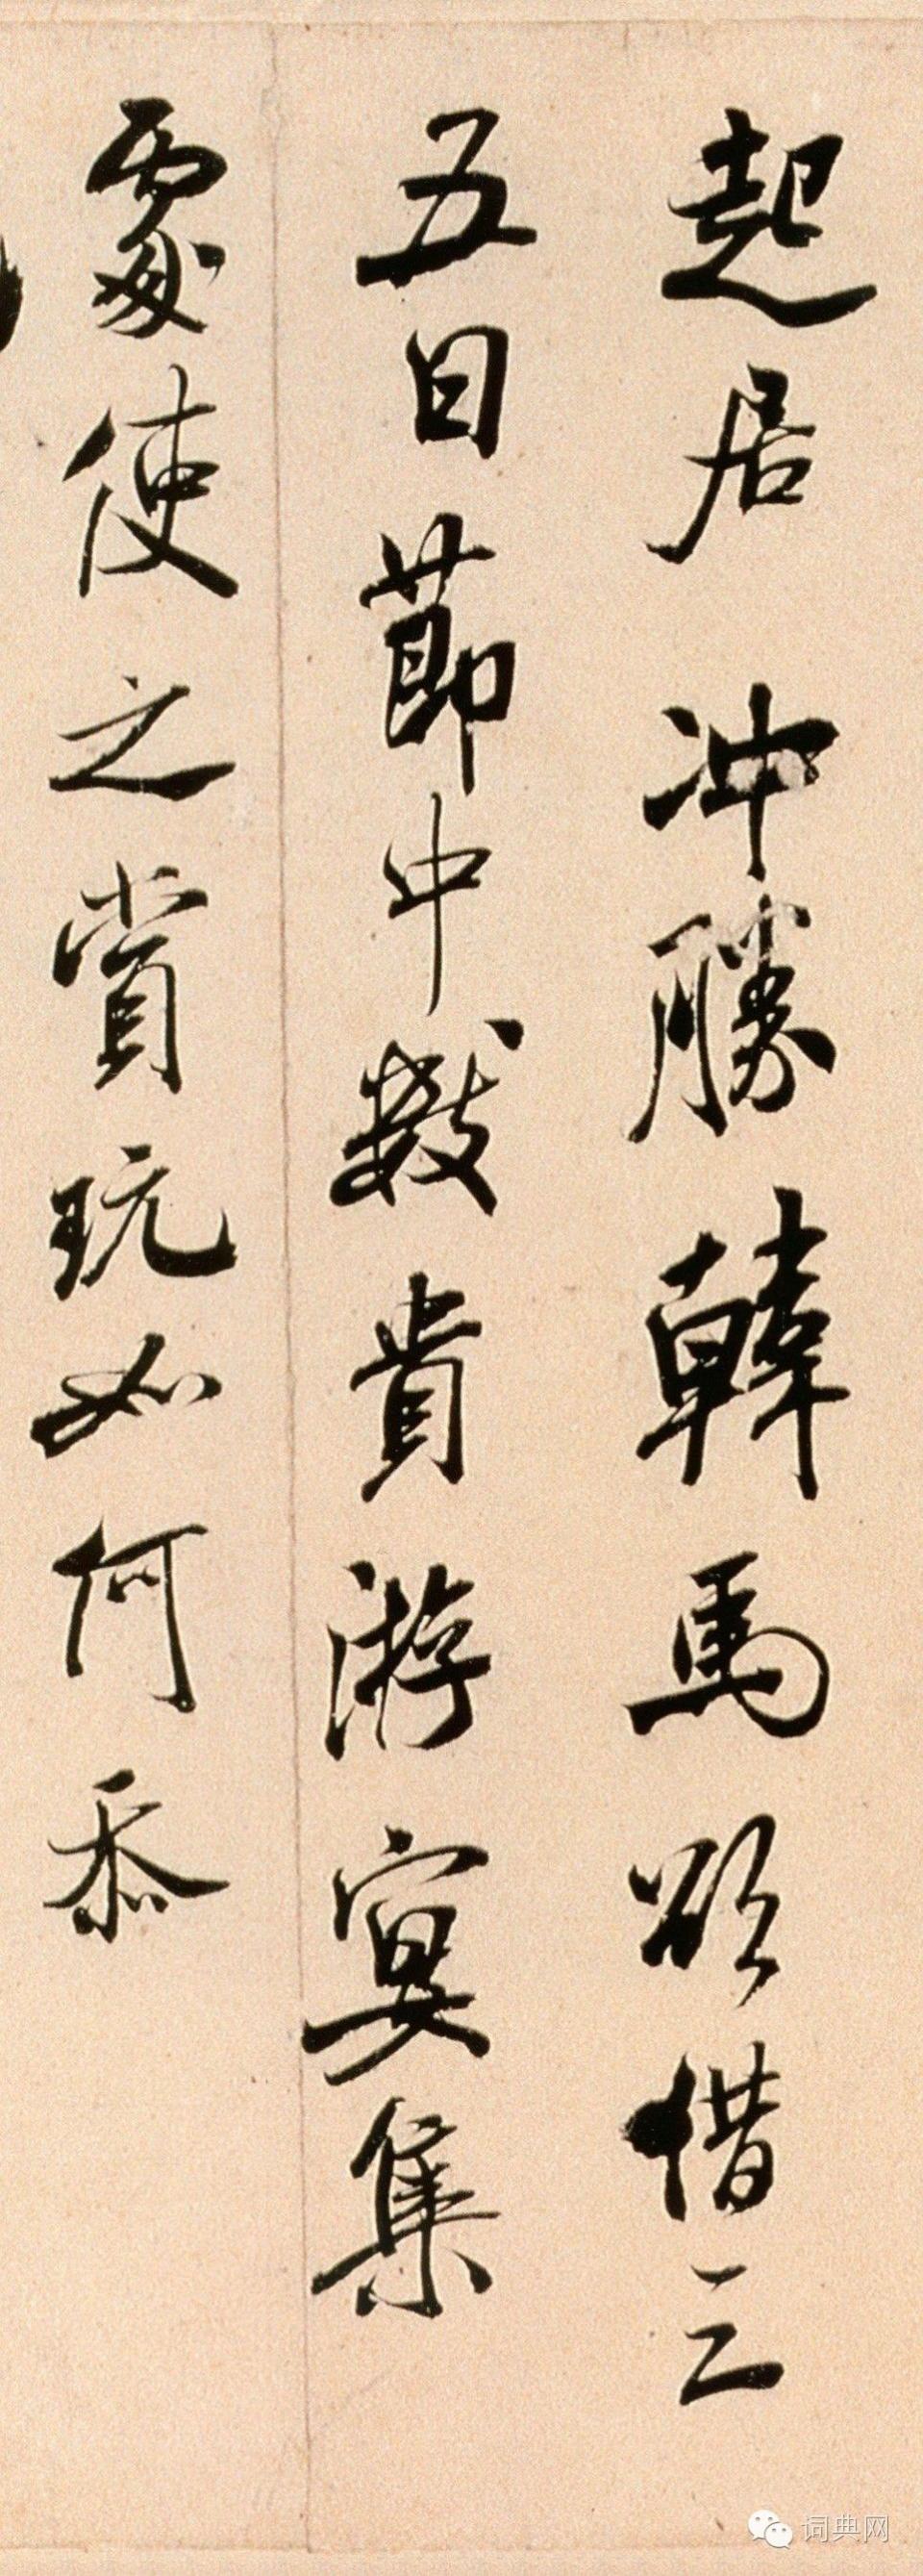 起居冲勝韓馬欲借三
五日節中數貴游宴集
處使之賞玩如何忝
词典网